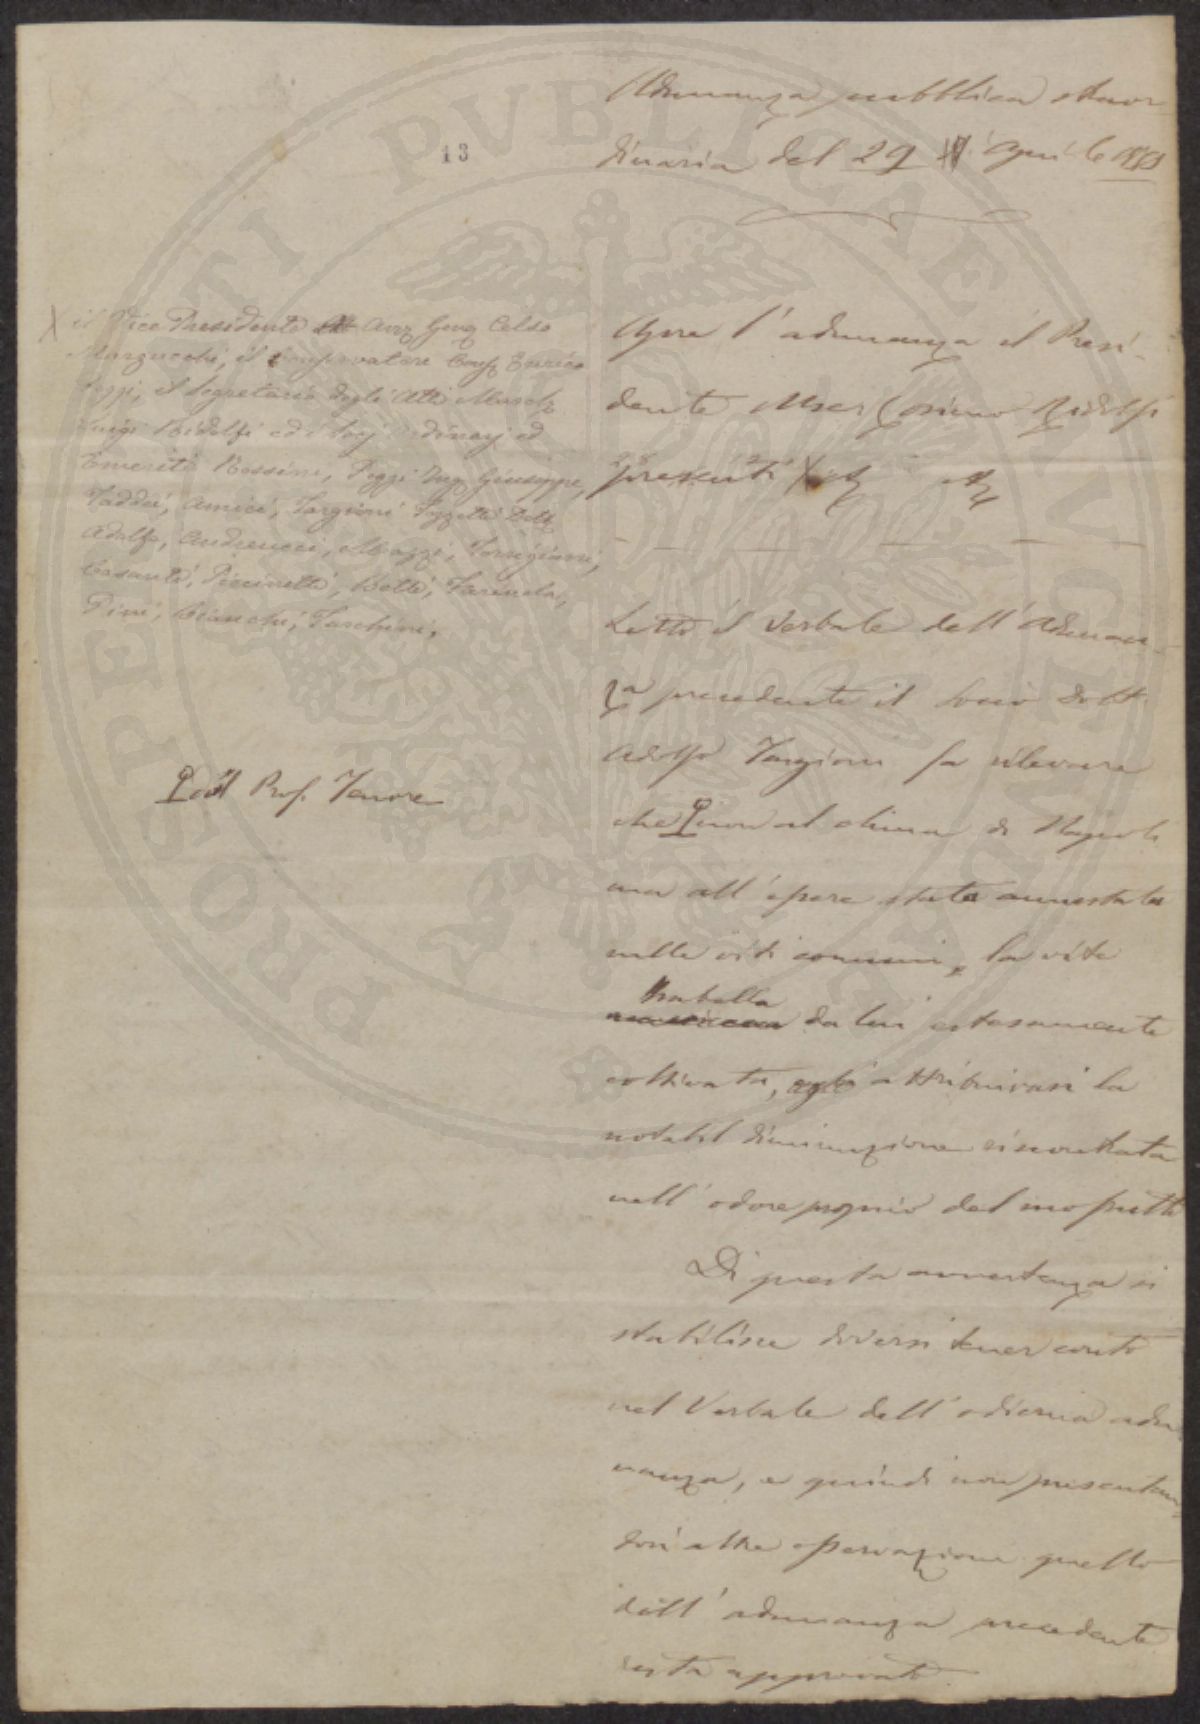 13
Adunanza pubblica straor
dinaria del 29 Aprile
X il Vice Presidente Avv Gen Celso
Marzucchi, il Conservatore Cons Enrico
Poggi, il Segretario degli Atti March
Luigi Ridolfi ed i Socj Ordinarj ed
Emeriti Rossini, Poggi Ing Giuseppe,
Taddei, Amici, Targioni Tozzetti Dott
Adolfo, Andreucci, Mazzi, Torrigiani,
Casanti, Piccinetti, Botti, Farinola,
Pini, Bianchi, Taschini,
Apre l'adunanza il Presi-
dente March Cosimo Ridolfi
presenti X
Letto il Verbale dell'Adunan-
za precedente il Socio Dott.
Adolfo Targioni fa rilevare
che non al clima di Napoli
ma all'essere stata annestata
nelle viti comuni, la vite
Isabella
americana da lui estesamente
coltivata, attribuivasi la
notabil diminuzione riscontrata
nell'odore proprio del suo frutto
Di questa avvertenza si
stabilisce doversi tener conto
nel Verbale dell'odierna adu
nanza, e quindi non presentan
dosi altre osservazioni quello
dell'adunanza precedente
resta approvato.
Prof. Tenore
PROSPERITATI PVBLICAE AVGENDAE